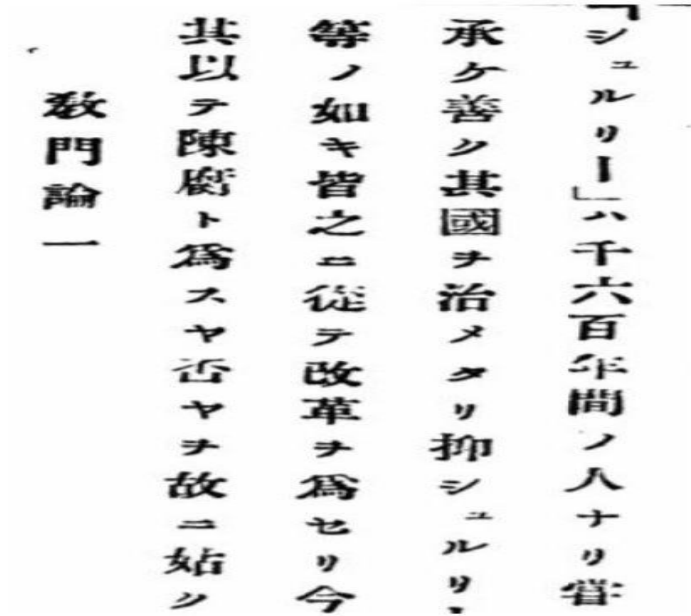 「シュルリー」ハ千六百年間ノ人ナリ嘗
承ケ善ク其國ヲ治メタリ抑シュルリ
等ノ如キ皆之ニ從テ改革ヲ爲セリ今
其以テ陳腐ト爲スヤ否ヤヲ故ニ姑ク
教門論一